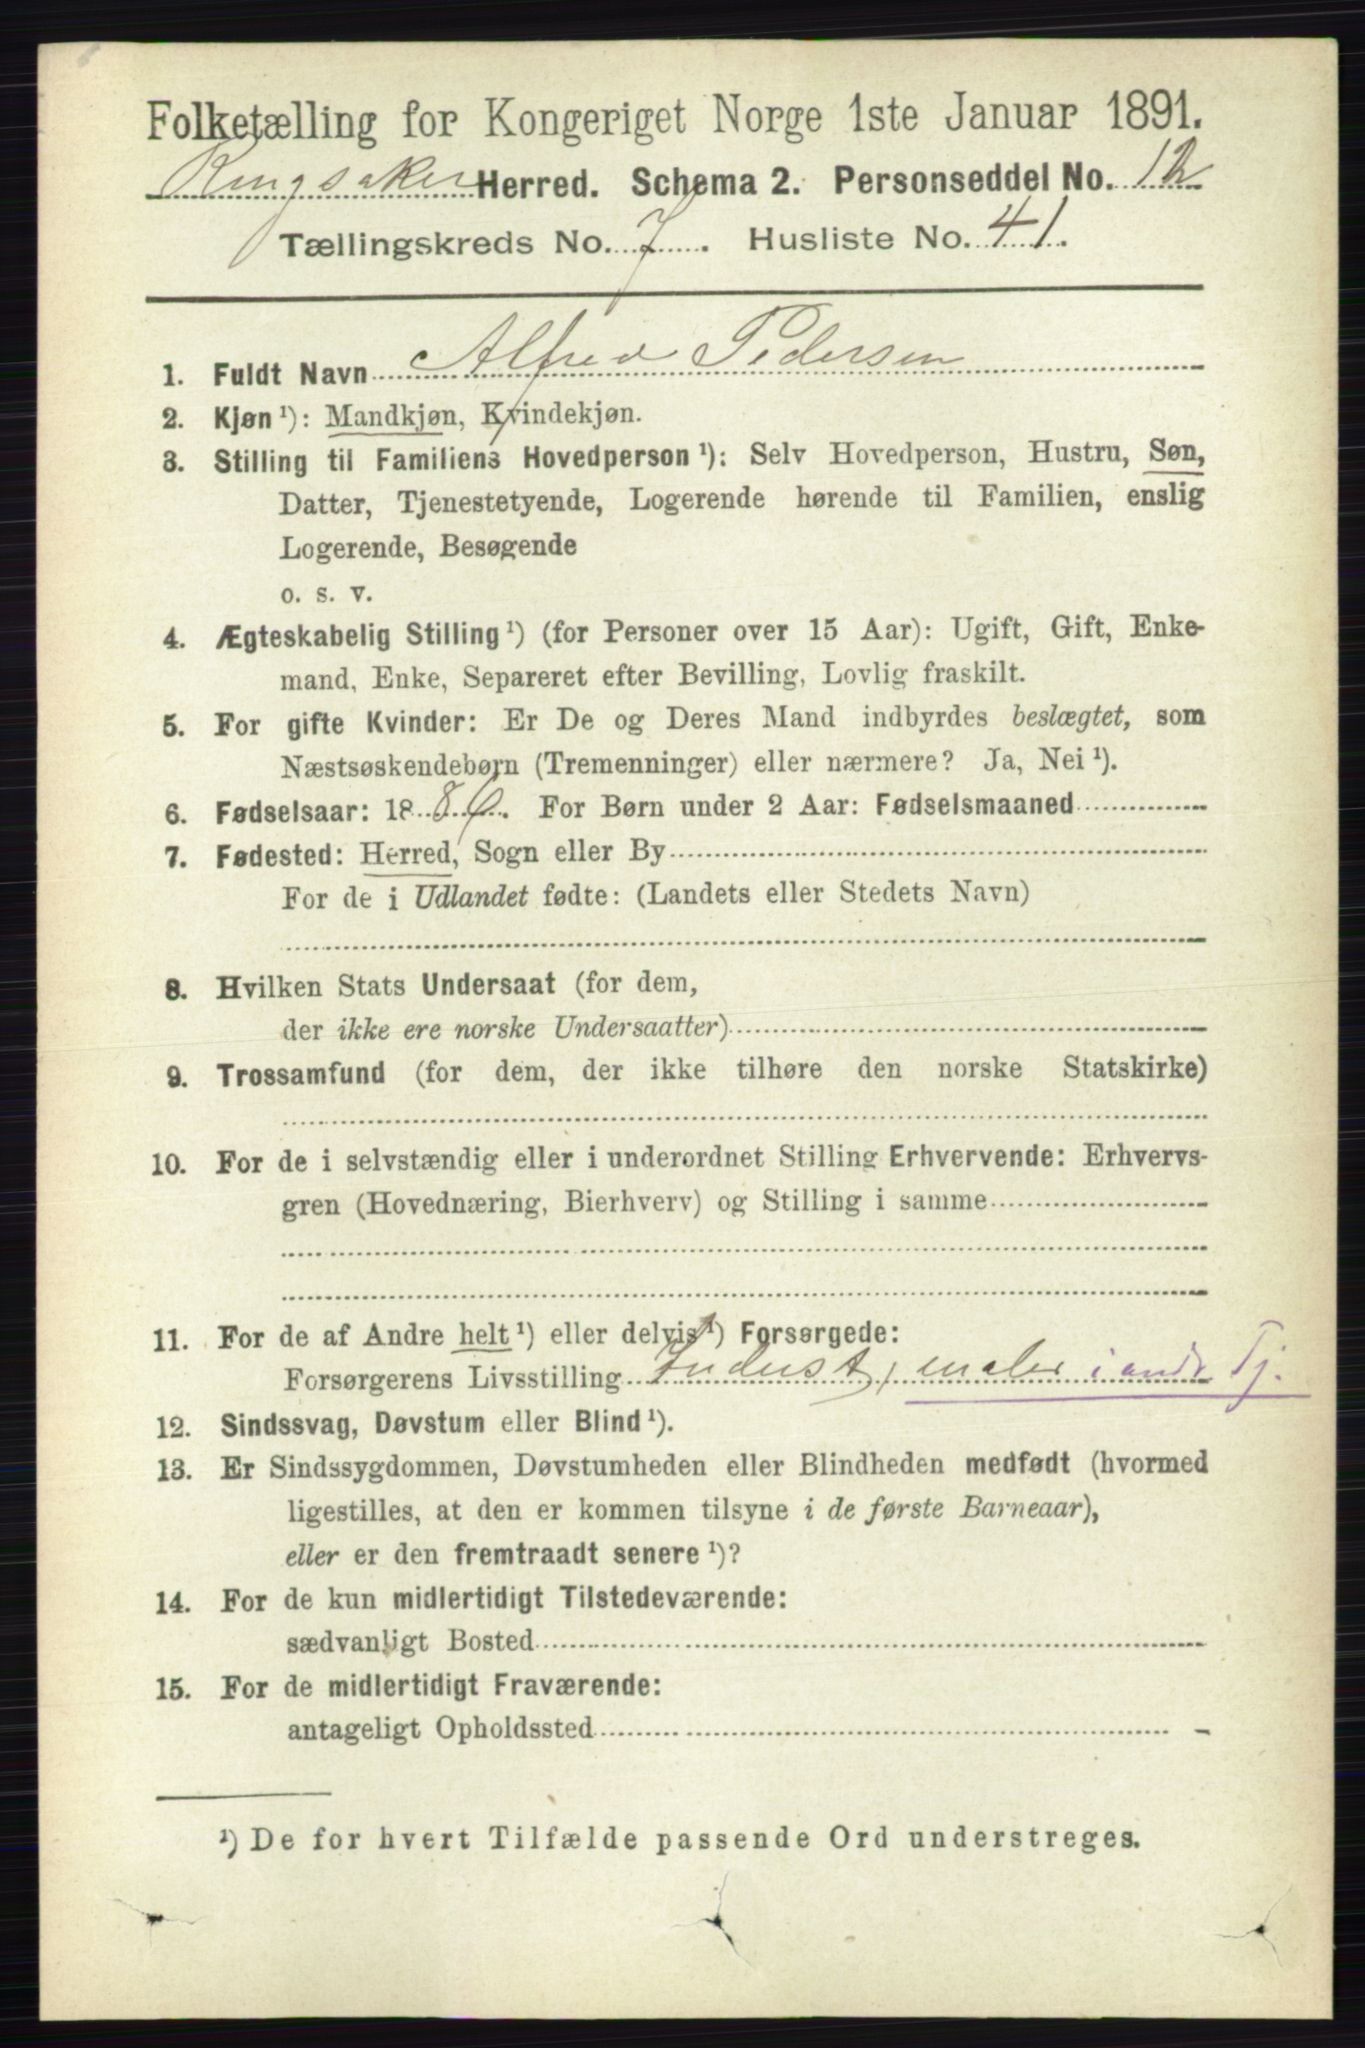 Folketælling for Kongeriget Norge 1ste Januar 1891.
Ringsaker Herred. Schema 2. Personseddel No. 12
Tællingskreds No. 7. Husliste No. 41.
1. Fuldt Navn Alfred Pedersen
2. Kjøn ¹): Mandkjøn, Kvindekjøn.
3. Stilling til Familiens Hovedperson ¹): Selv Hovedperson, Hustru, Søn,
Datter, Tjenestetyende, Logerende hørende til Familien, enslig
Logerende, Besøgende
o. s. v.
4. Ægteskabelig Stilling ¹) (for Personer over 15 Aar): Ugift, Gift, Enke-
mand, Enke, Separeret efter Bevilling, Lovlig fraskilt.
5. For gifte Kvinder: Er De og Deres Mand indbyrdes beslægtet, som
Næstsøskendebørn (Tremenninger) eller nærmere? Ja, Nei ¹).
6. Fødselsaar: 1886. For Børn under 2 Aar: Fødselsmaaned
7. Fødested: Herred, Sogn eller By
For de i Udlandet fødte: (Landets eller Stedets Navn)
8. Hvilken Stats Undersaat (for dem,
der ikke ere norske Undersaatter)
9. Trossamfund (for dem, der ikke tilhøre den norske Statskirke)
10. For de i selvstændig eller i underordnet Stilling Erhvervende: Erhvervs-
gren (Hovednæring, Bierhverv) og Stilling i samme
11. For de af Andre helt ¹) eller delvis ¹) Forsørgede:
Forsørgerens Livsstilling Inderst, maler i andr Tj.
12. Sindssvag, Døvstum eller Blind ¹).
13. Er Sindssygdommen, Døvstumheden eller Blindheden medfødt (hvormed
ligestilles, at den er kommen tilsyne i de første Barneaar),
eller er den fremtraadt senere ¹)?
14. For de kun midlertidigt Tilstedeværende:
sædvanligt Bosted
15. For de midlertidigt Fraværende:
antageligt Opholdssted
¹) De for hvert Tilfælde passende Ord understreges.